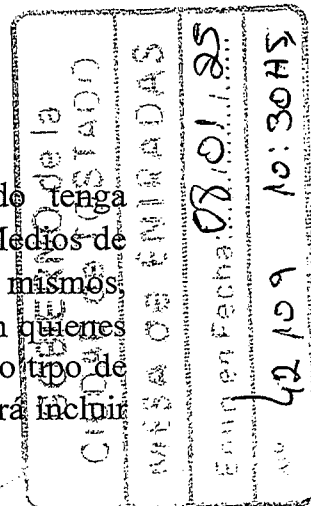 do tenga
Medios de
mismos,
n quienes
o tipo de
rá incluir
GOBIERNO de la
CIUDAD de TOSTADO
MESA DE ENTRADAS
Fecha: 08/01/25
42109 10:30HS